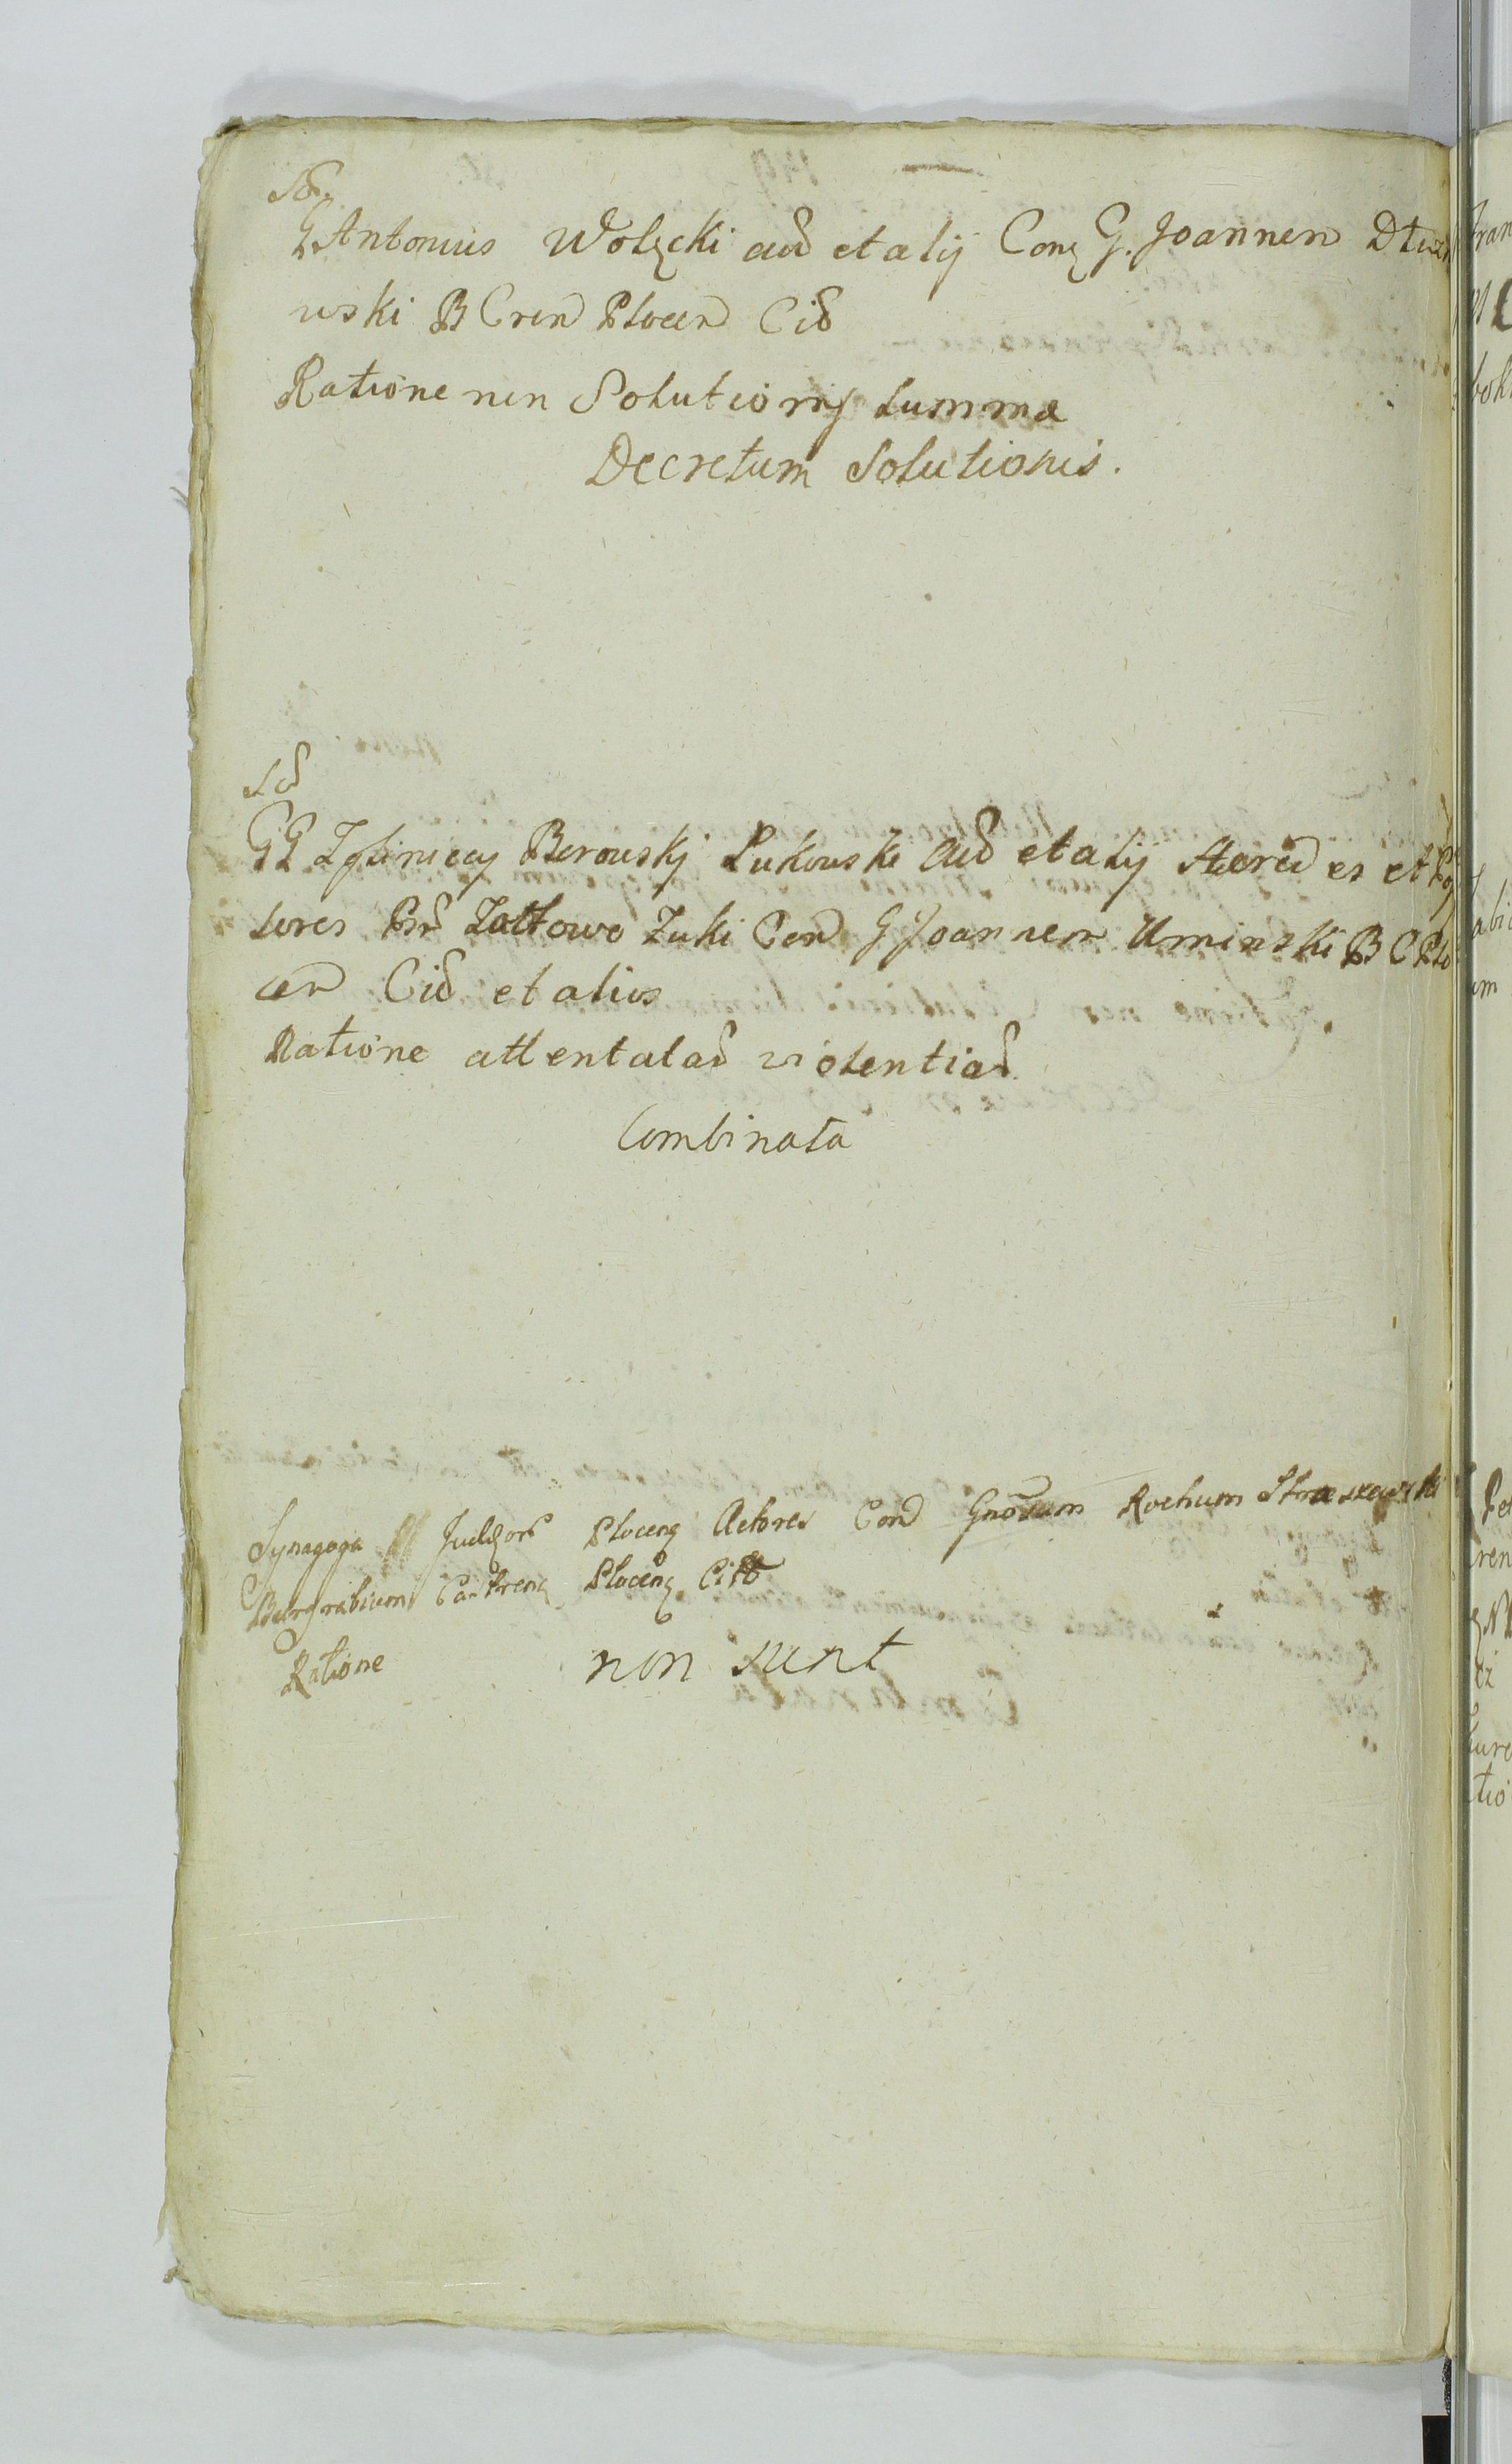 G Antonius Wolęcki aud et alij Con G. Joannen Dłuż
wski B Cren Plocen Cid
Ratione non Solutionis Summæ
Decretum Solutionis.
GG Zgliniccy Borowskj Łukowski aud et alij Hæred es et Po
sores Zattowo Żuki Con G Joannem Uminski B C Plo
cen Cid et alios
Ratione attentatad violentiad
Combinata
Synagoga Judeor Plocen Actores Con Gnosum Rochum
Burgrabium Castren Plocen Citt
Ratione non sunt